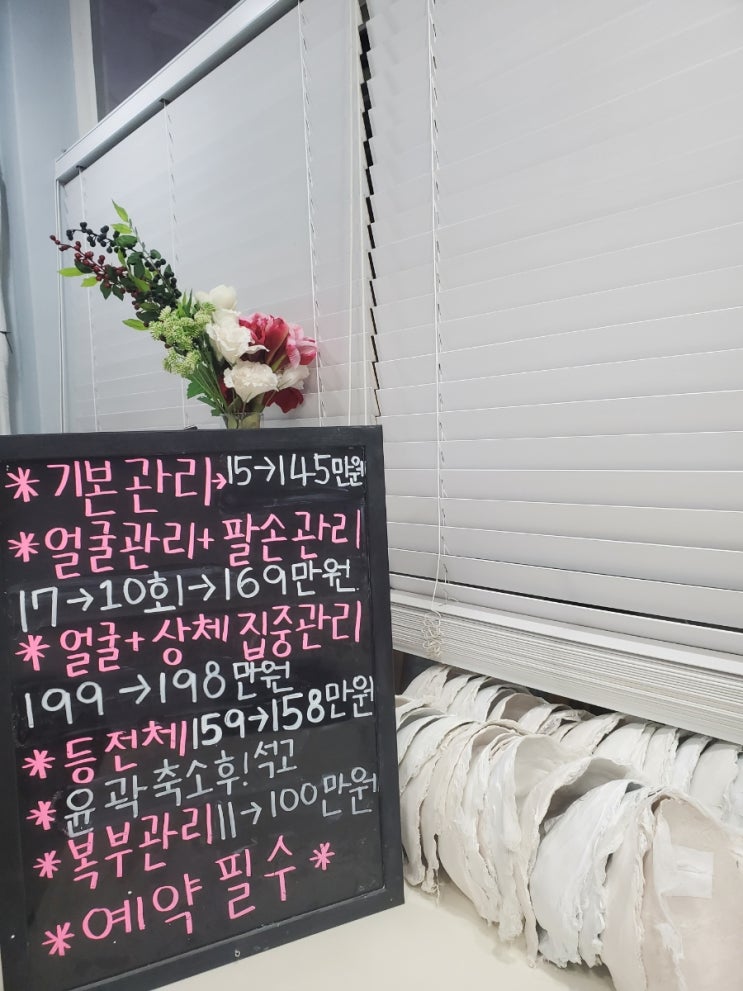 * 기본관리→15→145만원
* 얼굴관리+ 팔손관리
17→10회→169만원
* 얼굴+ 상체 집중관리
199→198만원
* 등전체159→158만원
* 윤곽축소후!석고
* 복부관리11→100만원
* 예약 필수 *